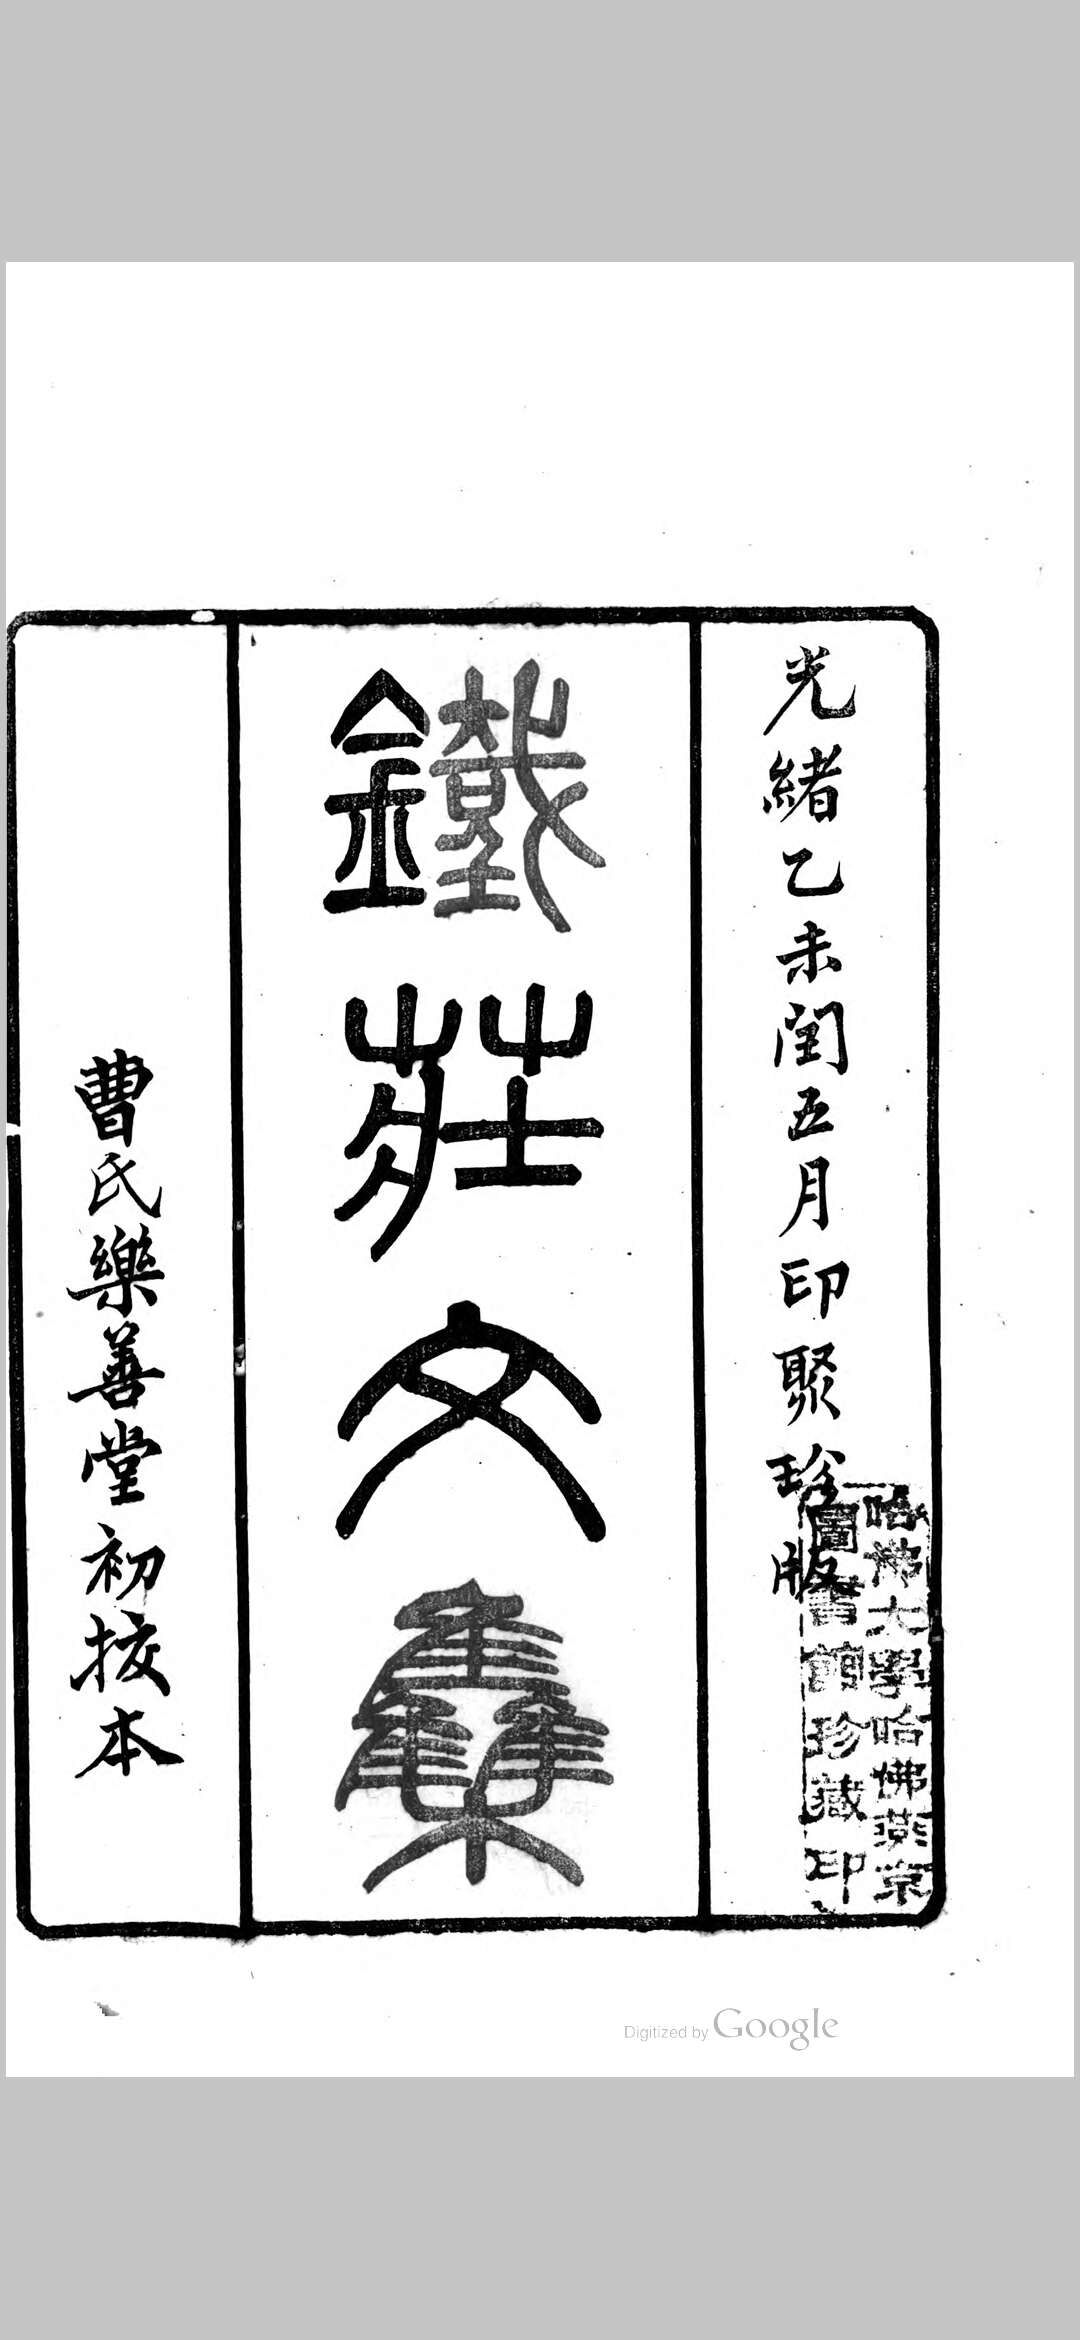 光緒乙未閏五月印聚珍版
鐵莊文集
曹氏樂善堂初挍本
哈佛大學哈佛燕京
圖書館珍藏印
Digitized by Google